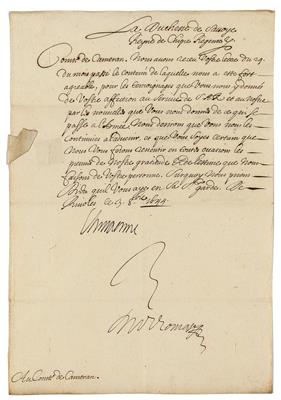 La Duchesse de Savoye
Reyne de Chipre Regente
Comte de Cameran. Nous auons receu Vostre lettre du 29
du mois passé le contenu de laquelle nous a esté fort
agreable, pour les tesmoignages que Vous nous y donnés
de Vostre affection au seruice de S.A.R. et au nostre
par les nouuelles que Vous nous donnés de ce qui se
passe a l'Armée. Nous desirons que Vous nous les
continuiés a l'aduenir, et que Vous soyés certain que
Nous Vous ferons ressentir en
de Nostre gratitude et de l'estime que Nous
faisons de Vostre personne. Surquoy Nous prions
Dieu qu'il Vous aye en Sa Ste garde. De
Riuoles ce 3 8bre 1644
Chrestienne
Au Comte de Cameran.